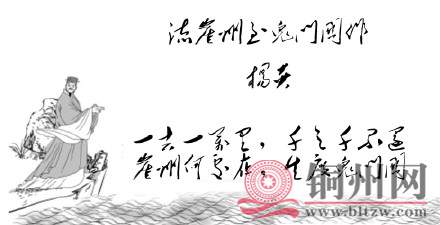 流崖州至鬼门关作
杨炎
一去一万里，千之千不还
崖州何处在，生度鬼门关
铜州网
www.bltzw.com